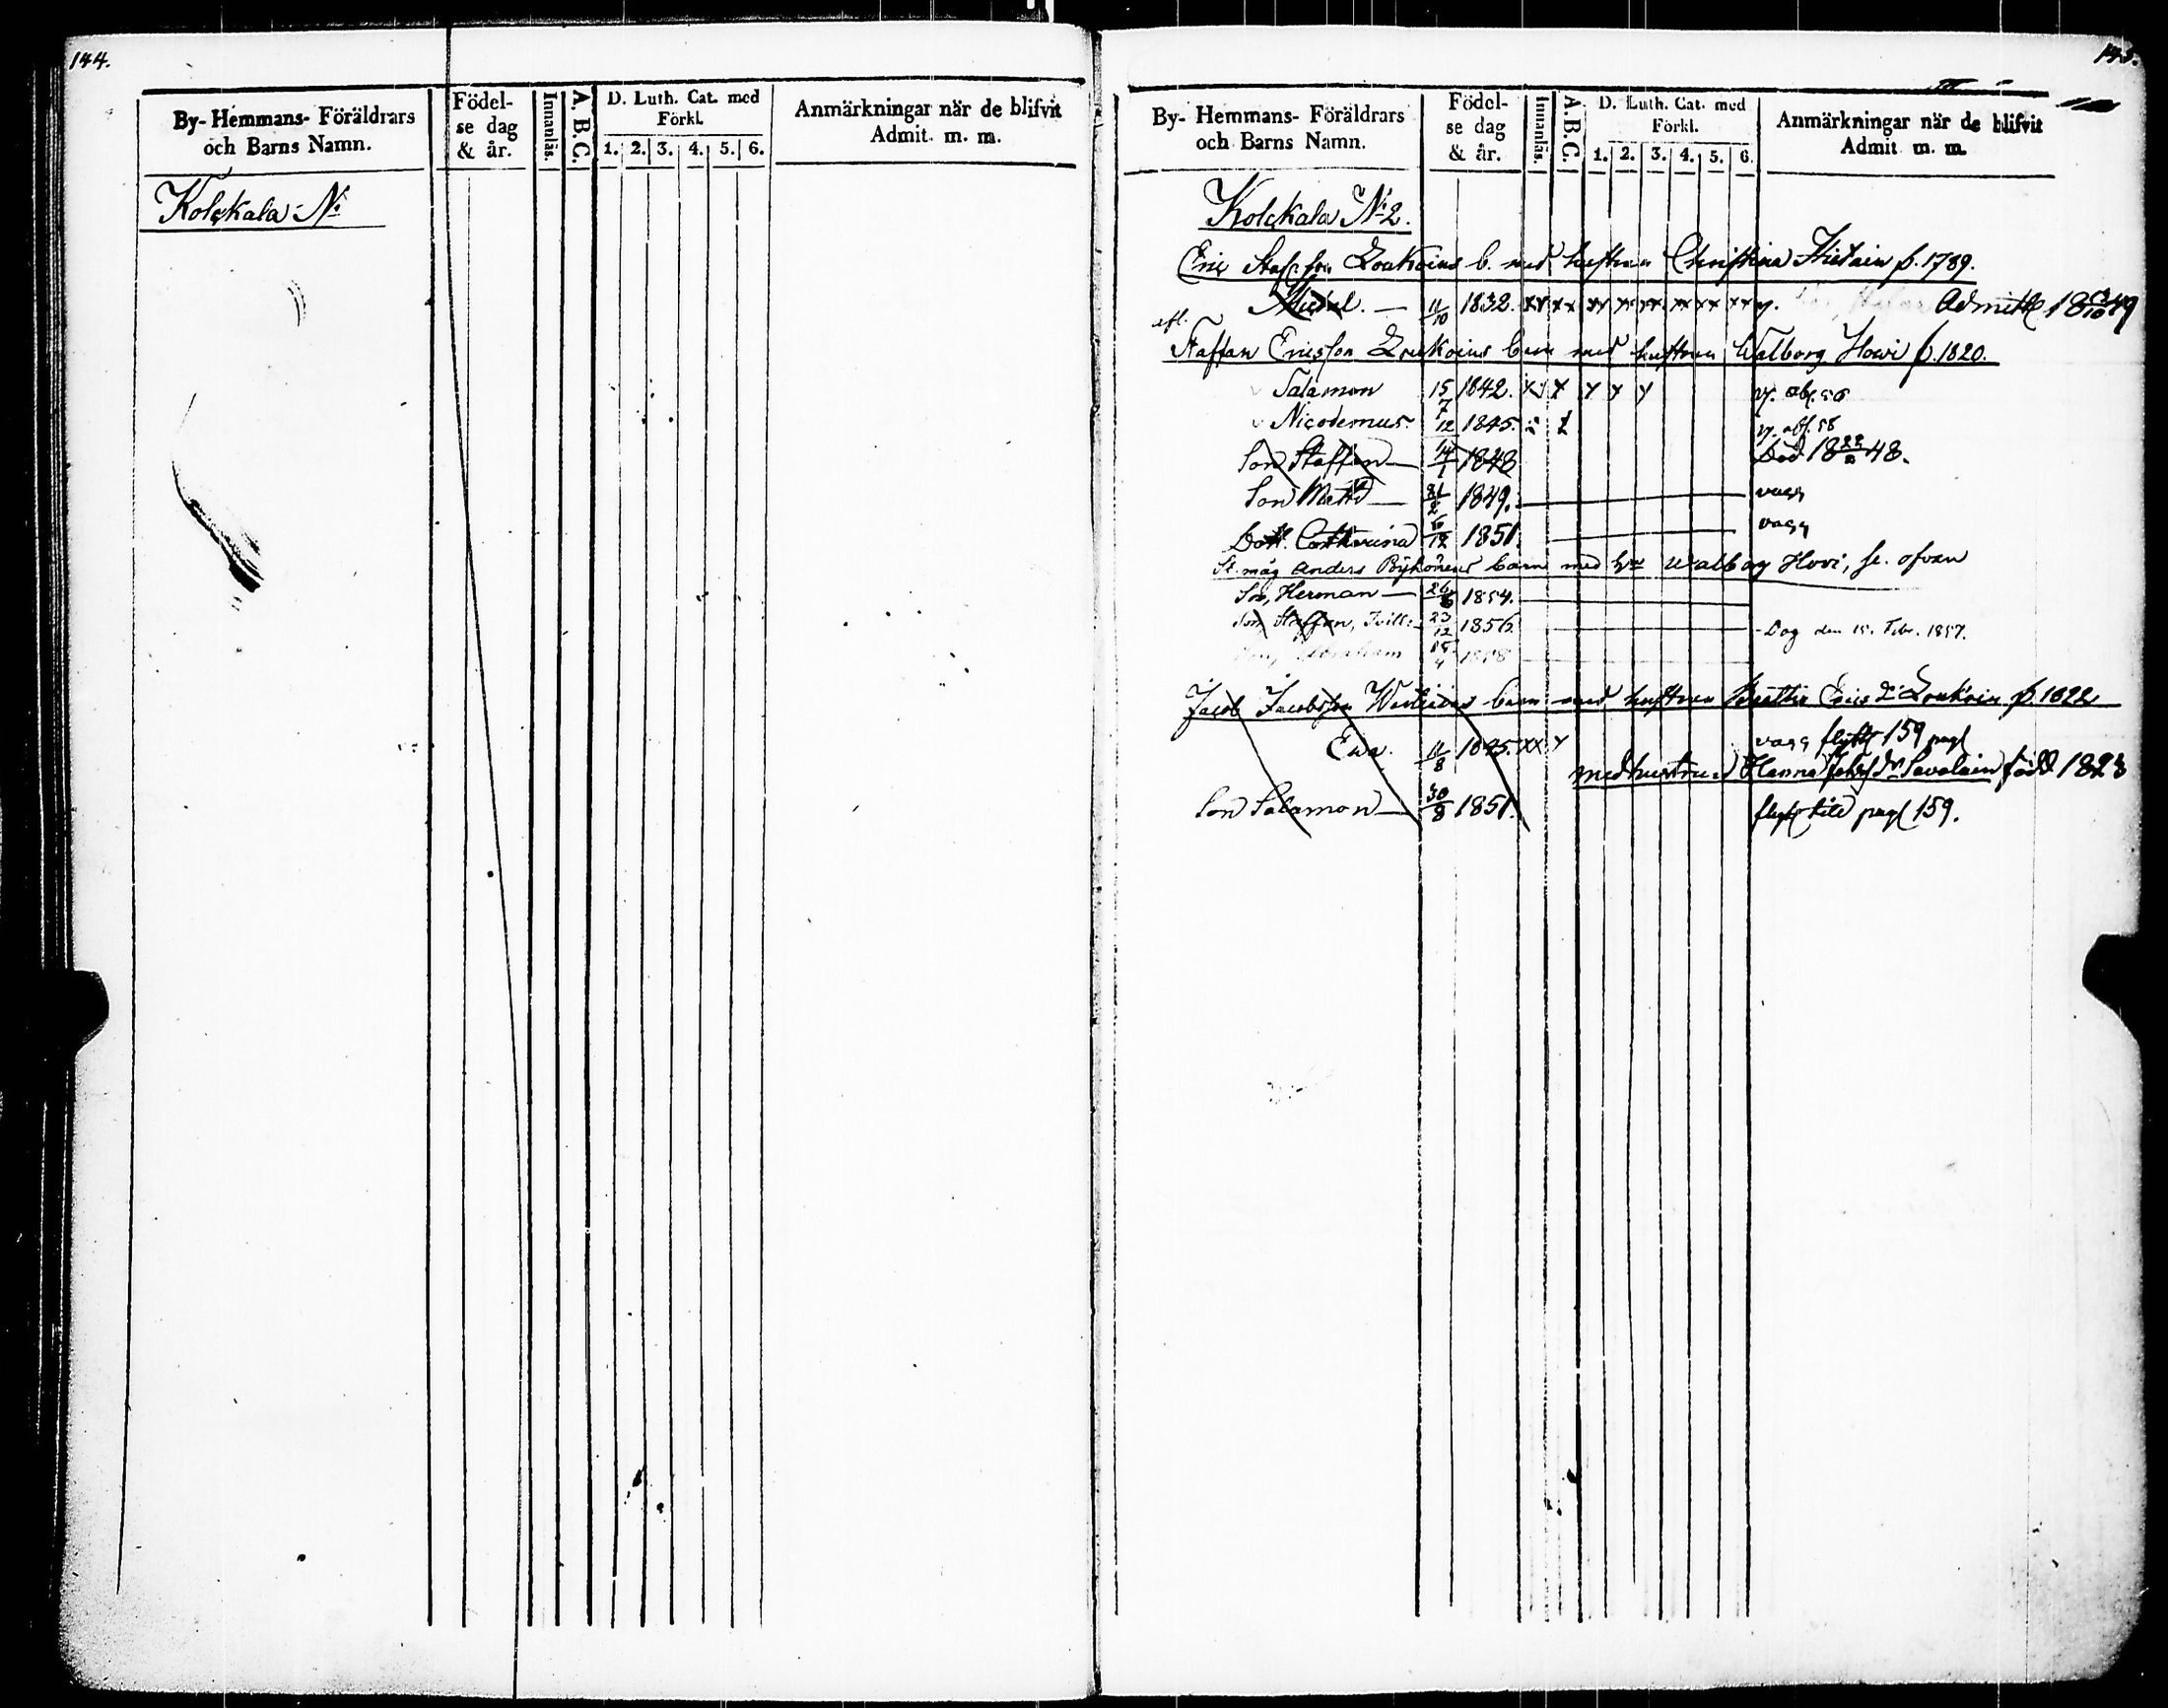 144.
By- Hemmans- Föräldrars och Barns Namn.
Födel- se dag & år.
Innanläs.
A.B.C.
D. Luth. Cat. med Förkl.
1. 2. 3. 4. 5. 6.
Anmärkningar när de blifvit Admit. m. m.
Kolckala N:
145.
By- Hemmans- Föräldrars och Barns Namn.
Födel- se dag & år.
Innanläs.
A.B.C.
D. Luth. Cat. med Förkl.
1. 2. 3. 4. 5. 6.
Anmärkningar när de blifvit Admit. m. m.
Kolckala N:2.
Eric Staf:son Loukoins b. med hustrun Christina f. 1789.
Michel. — 11/10 1832. xx xx xx xx xx xx xx xx
afl.
Staffan Ericsson Loukoins barn med hustrun Walborg Howi f. 1820.
Salamon 15/7 1842. x x x x x
Nicodemus 1/12 1845.
Son Staffan — 14/1 1848 Död 18 22/2 48.
Son Matts — 21/2 1849. — vagg
Dott. Catharina 6/12 1851. — vagg
St. måg Anders Pöyhönens barn med h:u Walborg Hovi, se ofvan
Son, Herman — 26/6 1854.
Son Staffan, Tvill: 23/12 1856. — Dog den 15. Febr. 1857.
Abraham 1858
Jacob Jacobsson barn med hustrun Erics d:r Loukoin f. 1822
Ewa. 11/8 1845. xx x vagg flytt 159 pag
med hustrun Hanna Savolain född 1823
Son Salamon — 30/8 1851. flytt till pag 159.